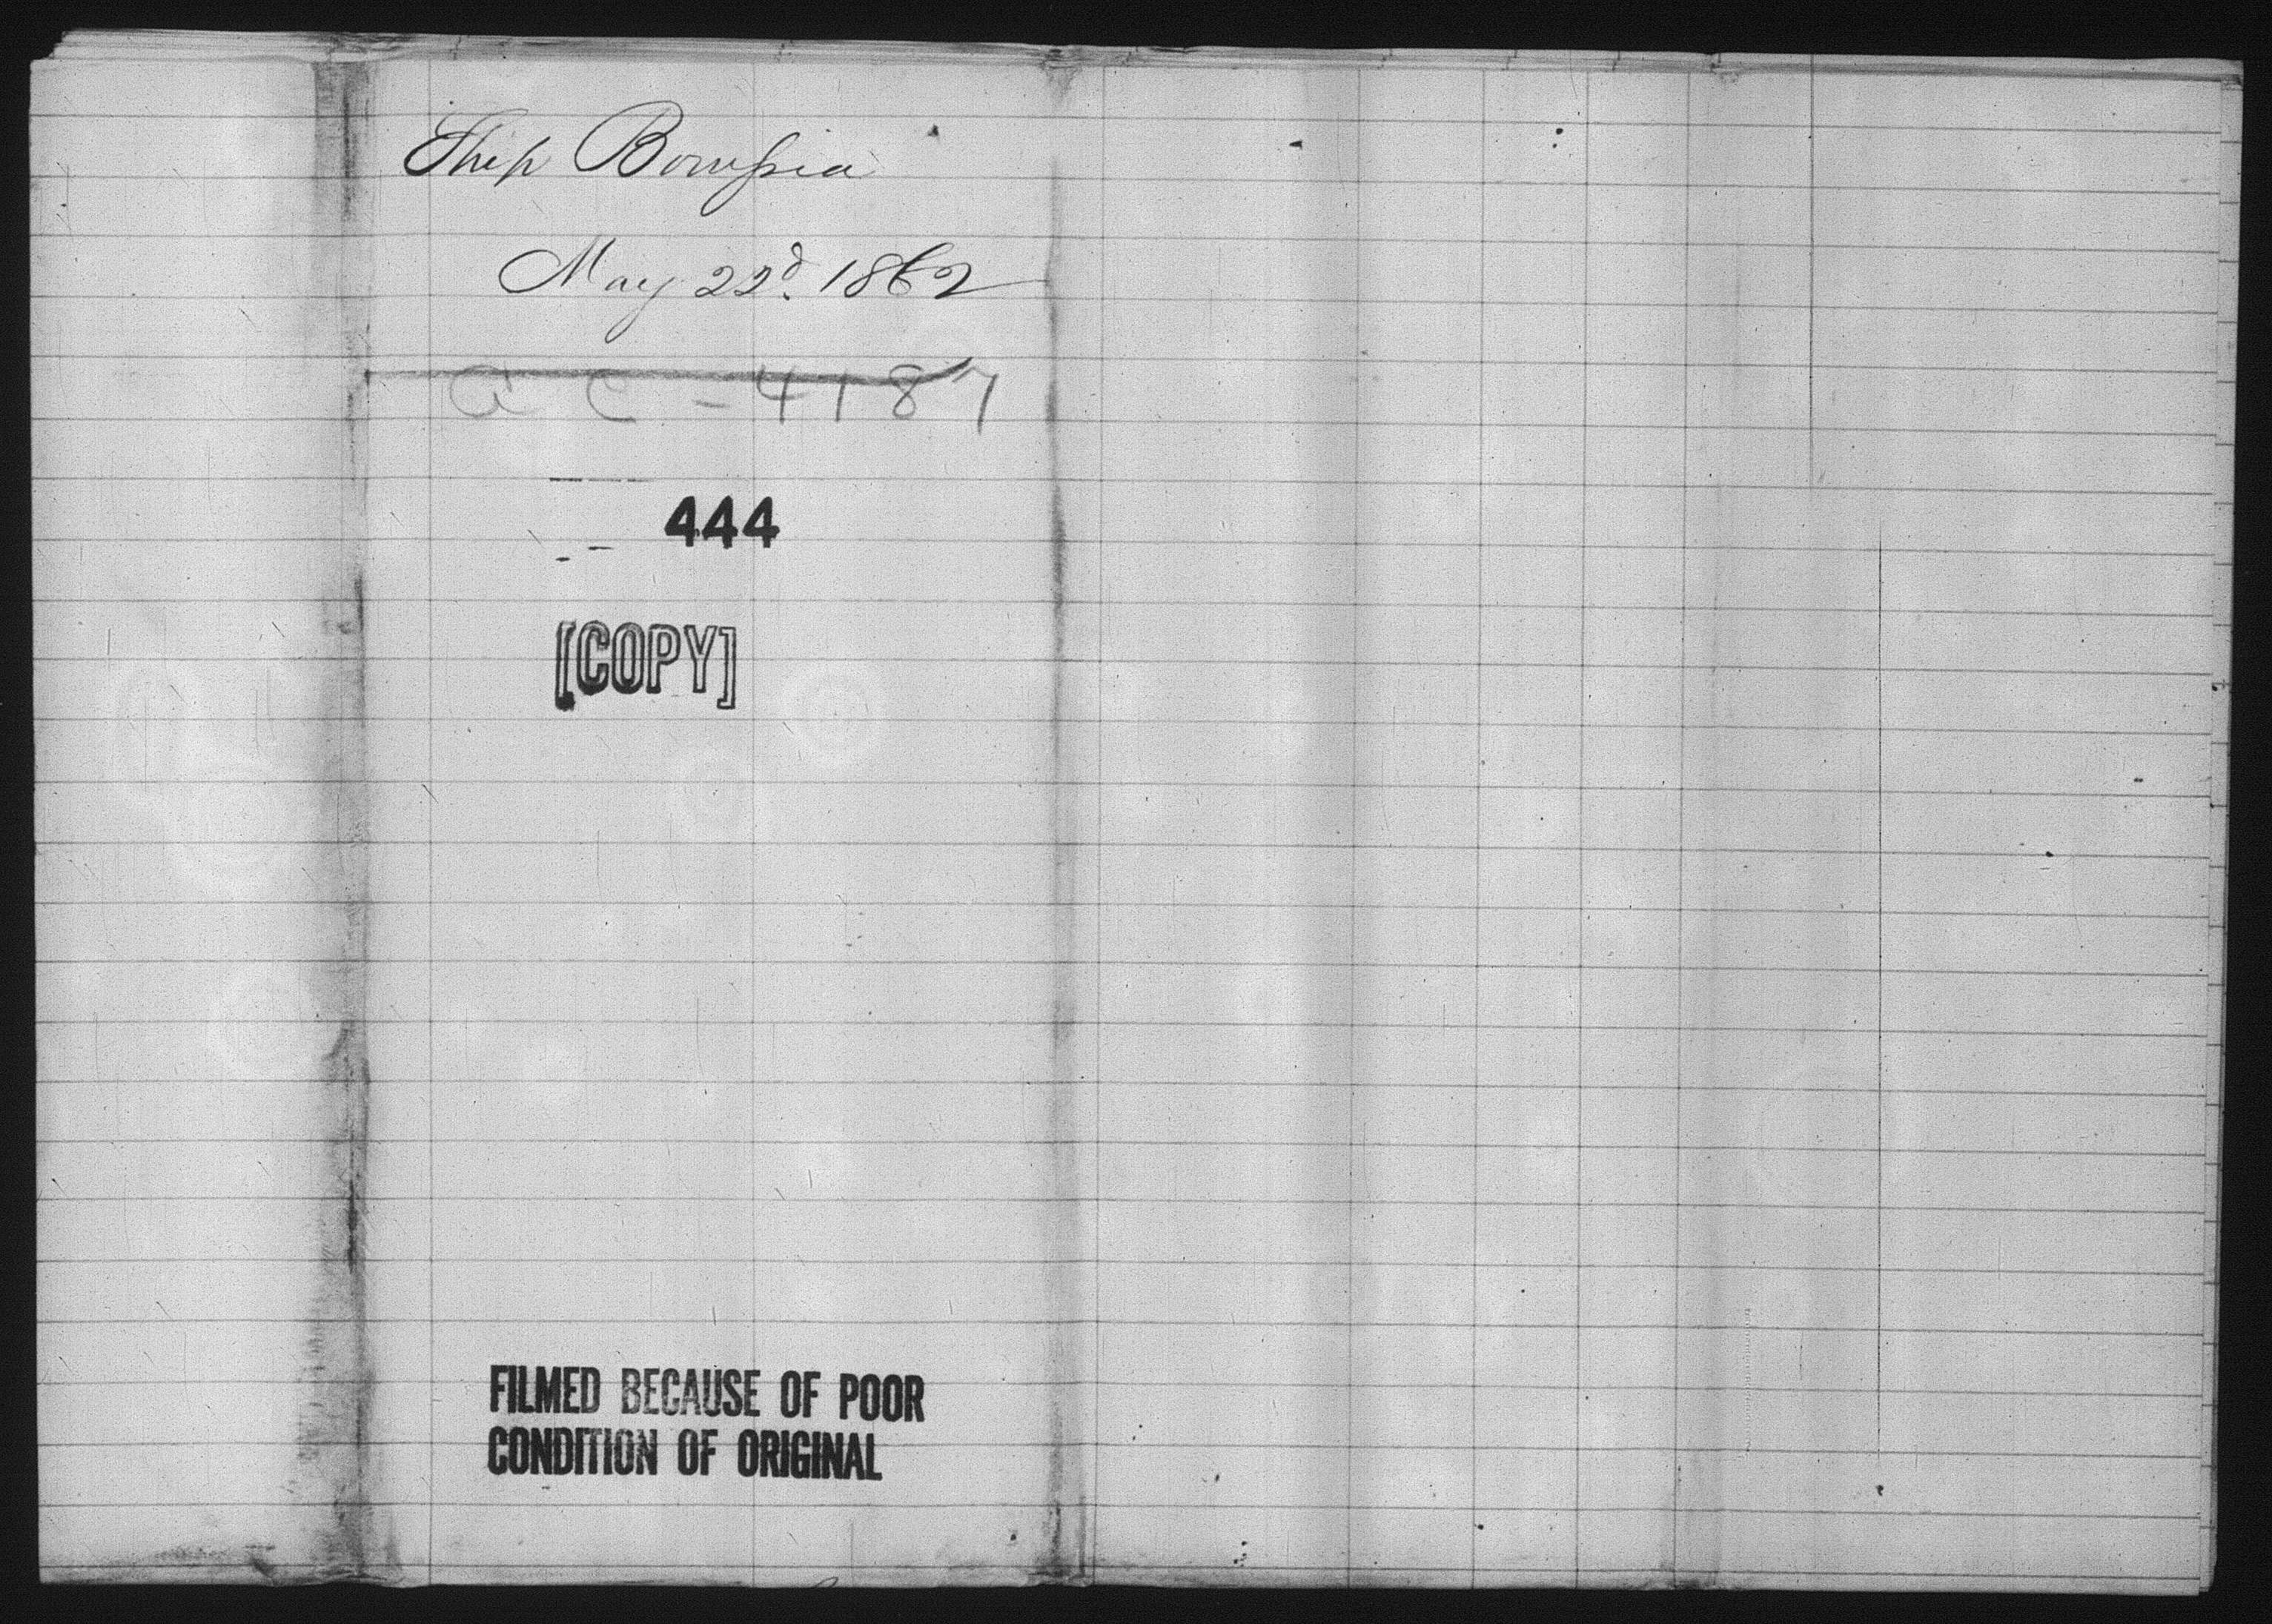 Ship Borussia
May 22d. 1862
a c - 4187
444
[COPY]
FILMED BECAUSE OF POOR
CONDITION OF ORIGINAL